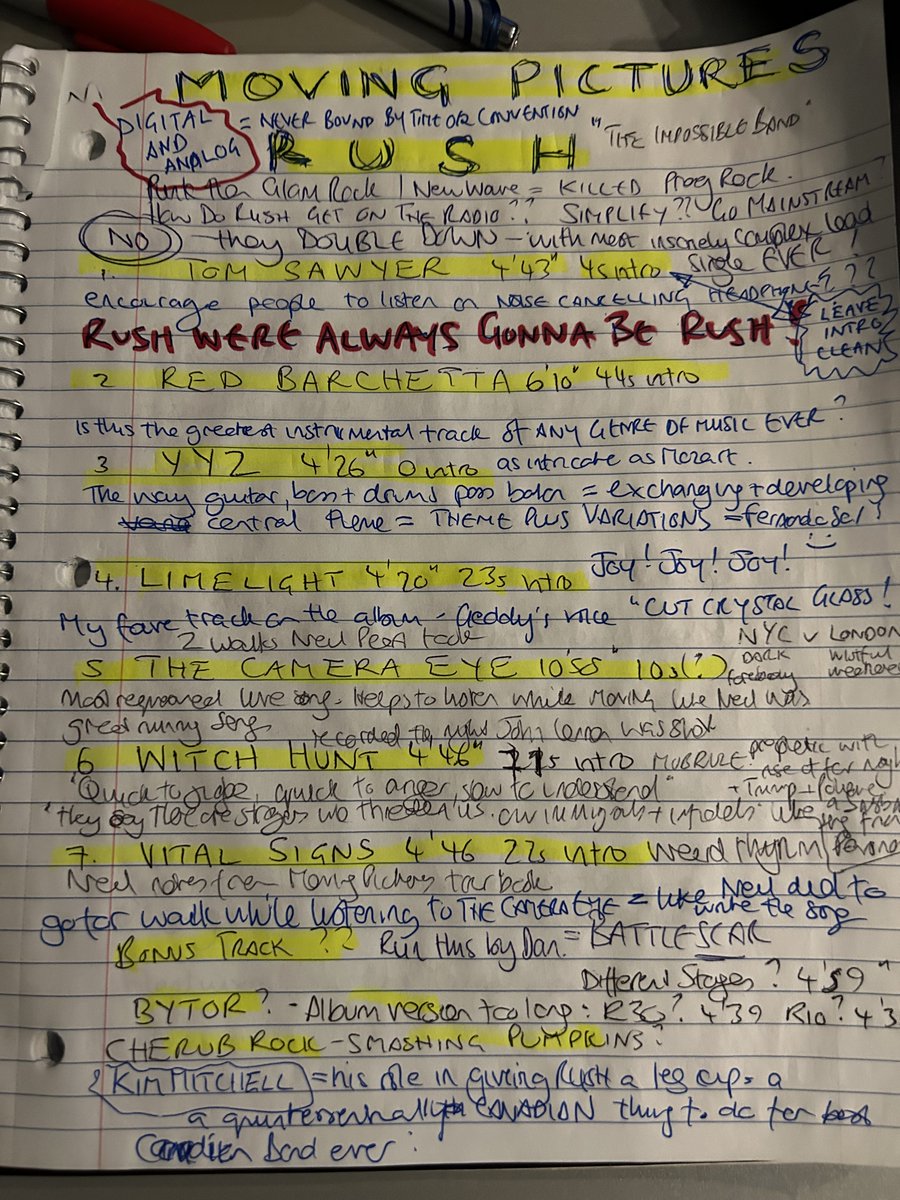 MOVING PICTURES
DIGITAL AND ANALOG
= NEVER BOUND BY TIME OR CONVENTION
"THE IMPOSSIBLE BAND"
RUSH
Punk then Glam Rock / New Wave = KILLED Prog Rock.
How Do RUSH GET ON THE RADIO?? SIMPLIFY?? GO MAINSTREAM?
NO - they DOUBLE DOWN - with most insanely complex lead single EVER!
1. TOM SAWYER 4'43" 4s intro
encourage people to listen on NOISE CANCELLING HEADPHONES??
LEAVE INTRO CLEAN
RUSH WERE ALWAYS GONNA BE RUSH!
2 RED BARCHETTA 6'10" 44s intro
Is this the greatest instrumental track of ANY GENRE OF MUSIC EVER?
3 YYZ 4'26" 0 intro as intricate as Mozart.
The way guitar, bass + drums pass baton = exchanging + developing
central theme = THEME PLUS VARIATIONS =
Joy! Joy! Joy!
4. LIMELIGHT 4'20" 23s intro
My fave track on the album - Geddy's voice "CUT CRYSTAL GLASS!
2 walks Neil Peart took
NYC v LONDON
5 THE CAMERA EYE 10'55" 10s(?)
DARK wistful
Most requested live song. Helps to listen while moving like Neil was
great running song
recorded the night John Lennon was shot
6 WITCH HUNT 4'46" intro MOB RULE. prophetic with rise of far right
+ Trump +
"Quick to judge, quick to anger, slow to understand"
"they say there are strangers who threaten us. our immigrants + infidels"
7. VITAL SIGNS 4'46 22s intro weird rhythm
Neil notes from Moving Pictures tour book
go for walk while listening to THE CAMERA EYE = like Neil did to write the song
BONUS TRACK?? Run this by Dan = BATTLESCAR
Different Stages? 4'59"
BYTOR? - Album version too long: R30? 4'39 Rio? 4'3
CHERUB ROCK - SMASHING PUMPKINS?
KIM MITCHELL = his role in giving Rush a leg up = a
a quintessentially CANADIAN thing to do for
Canadian band ever